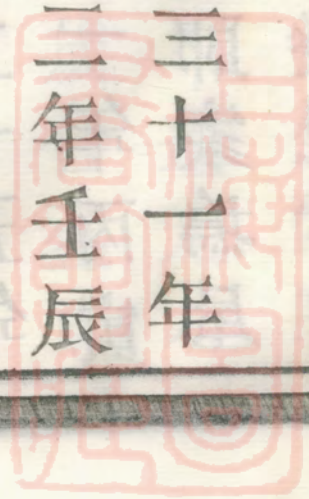 三十一年
二年壬辰